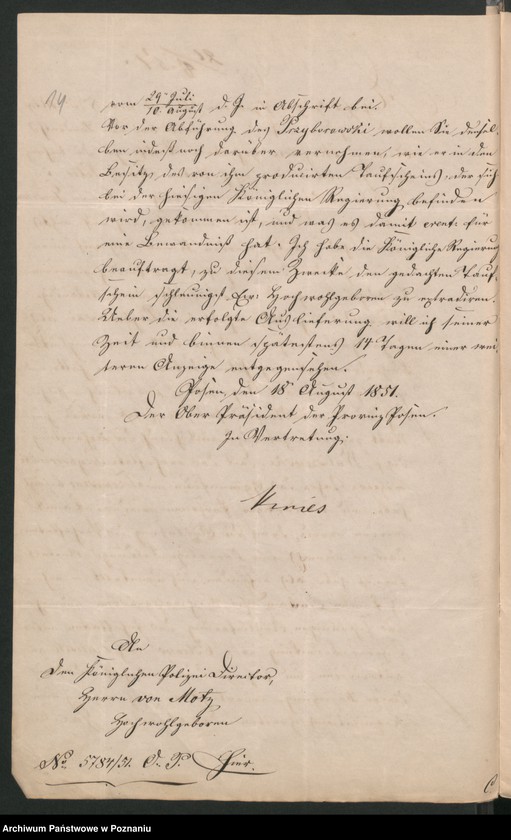 14
vom 29 Juli/10. August d. J. in Abschrift bei.
Vor der Abführung des Przyborowski wollen Sie densel-
ben indeß noch darüber vernehmen, wie er in den
Besitz des von ihm produzirten Taufscheins, der sich
bei der hiesigen Königlichen Regierung befinden
wird, gekommen ist, und was es damit event: für
eine Bewandniß hat. Ich habe die Königliche Regierung
beauftragt, zu diesem Zwecke den gedachten Tauf-
schein schleunigst Ew: Hochwohlgeboren zu extradiren.
Ueber die erfolgte Auslieferung will ich seiner
Zeit und binnen spätestens 14 Tagen einer wei-
teren Anzeige entgegensehen.
Posen, den 18 August 1851.
Der Ober Präsident der Provinz Posen.
In Vertretung:
An
den Königlichen Polizei Director,
Herrn von Motz
Hochwohlgeboren
No. 5784/51. O. P. Hier.
Archiwum Państwowe w Poznaniu